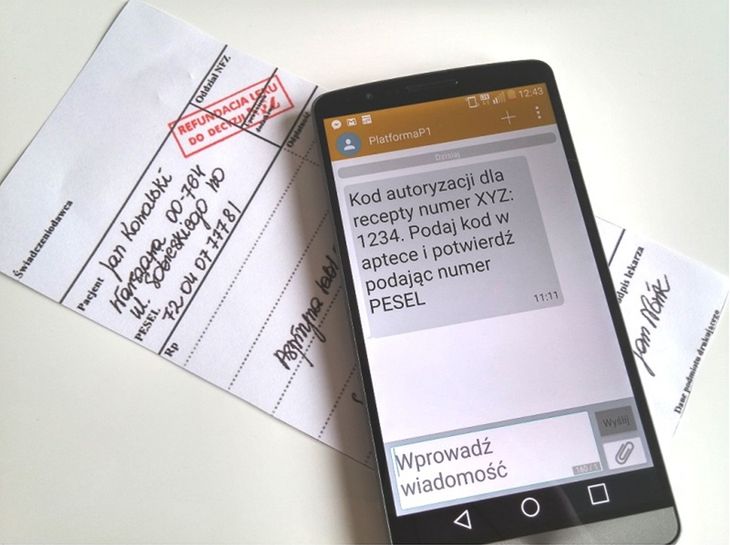 Świadczeniodawca
Oddział NFZ
REFUNDACJA LEKU
DO DECYZJI
Pacjent
Jan Kowalski
Warszawa 00-764
ul. Sobieskiego 110
PESEL
72 04 07 777 81
Odpłatność
Rp
Aspiryna
12:43
PlatformaP1
Dzisiaj
Kod autoryzacji dla
recepty numer XYZ:
1234. Podaj kod w
aptece i potwierdź
podając numer
PESEL
11:11
Wprowadź
wiadomość
Wyślij
160 / 1
lekarza
Jan
Dane podmiotu drukującego